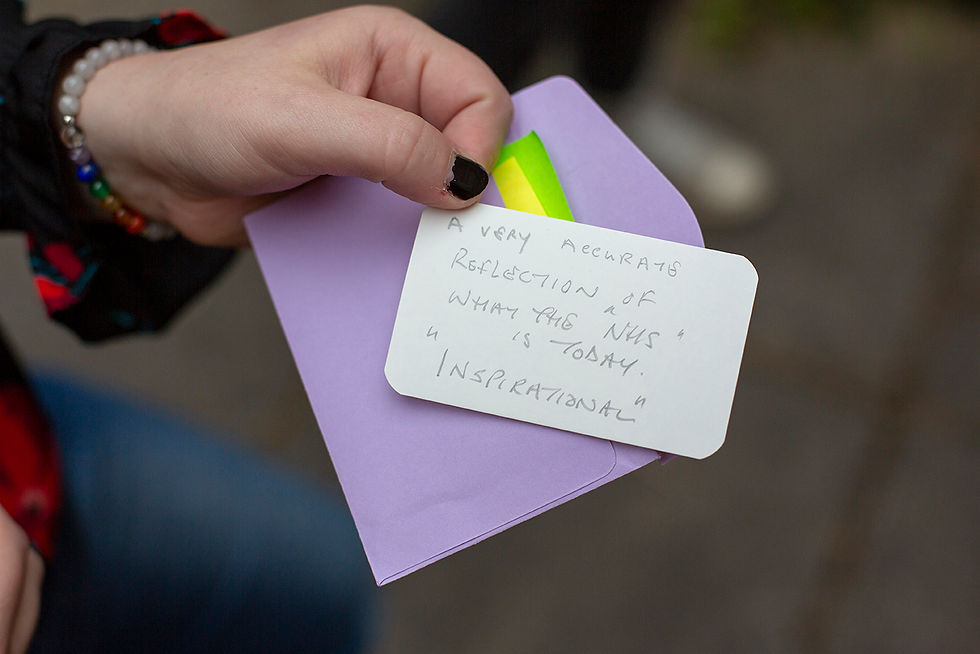 A VERY ACCURATE
REFLECTION OF
WHAT THE "NHS"
IS TODAY.
"INSPIRATIONAL"